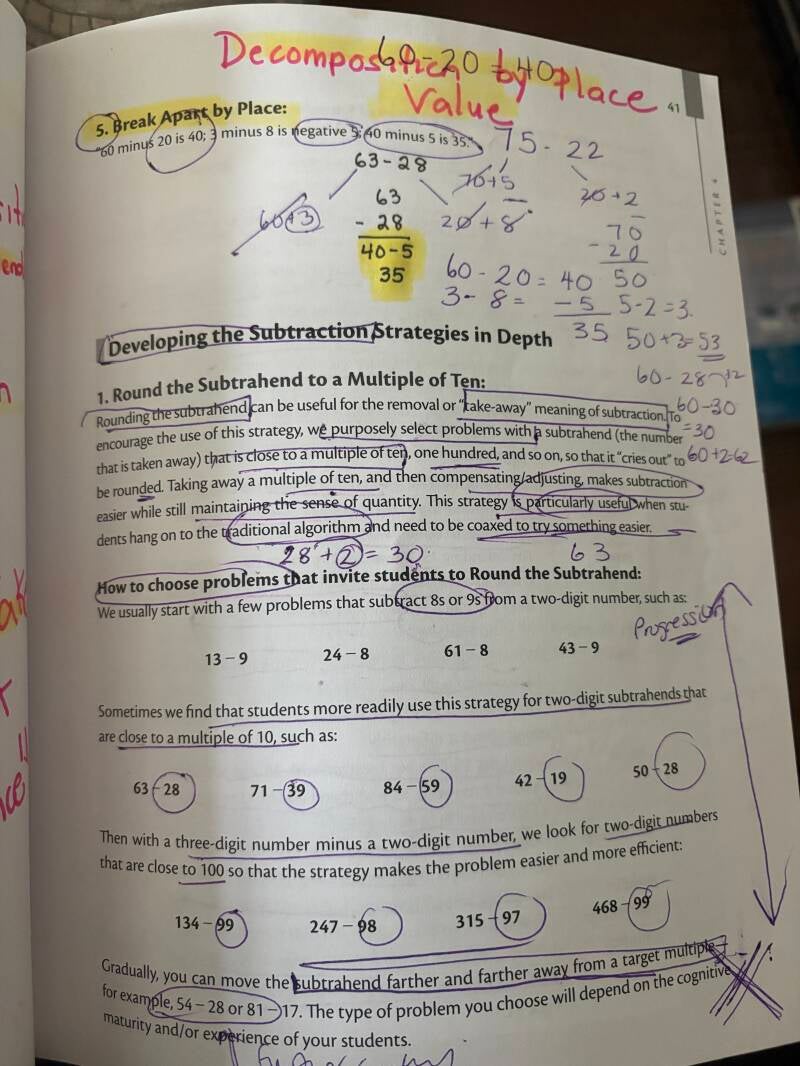 Decomposition by Place
Value
60-20 = 40
41
5. Break Apart by Place:
"60 minus 20 is 40; 3 minus 8 is negative 5; 40 minus 5 is 35."
CHAPTER 4
63 – 28
75 - 22
63
- 28
40 - 5
35
60+3
20 + 8
70+5
20+2
70
- 20
50
60 - 20 = 40
3 - 8 = - 5
35
5-2=3.
50+3=53
60 - 28
60-30
=30
60+2=62
Developing the Subtraction Strategies in Depth
1. Round the Subtrahend to a Multiple of Ten:
Rounding the subtrahend can be useful for the removal or "take-away" meaning of subtraction. To
encourage the use of this strategy, we purposely select problems with a subtrahend (the number
that is taken away) that is close to a multiple of ten, one hundred, and so on, so that it "cries out" to
be rounded. Taking away a multiple of ten, and then compensating/adjusting, makes subtraction
easier while still maintaining the sense of quantity. This strategy is particularly useful when stu-
dents hang on to the traditional algorithm and need to be coaxed to try something easier.
28 + 2 = 30
63
How to choose problems that invite students to Round the Subtrahend:
We usually start with a few problems that subtract 8s or 9s from a two-digit number, such as:
Progression
13 – 9 24 – 8 61 – 8 43 – 9
Sometimes we find that students more readily use this strategy for two-digit subtrahends that
are close to a multiple of 10, such as:
63 – 28 71 – 39 84 – 59 42 – 19 50 – 28
Then with a three-digit number minus a two-digit number, we look for two-digit numbers
that are close to 100 so that the strategy makes the problem easier and more efficient:
134 – 99 247 – 98 315 – 97 468 – 99
Gradually, you can move the subtrahend farther and farther away from a target multiple—
for example, 54 – 28 or 81 – 17. The type of problem you choose will depend on the cognitive
maturity and/or experience of your students.